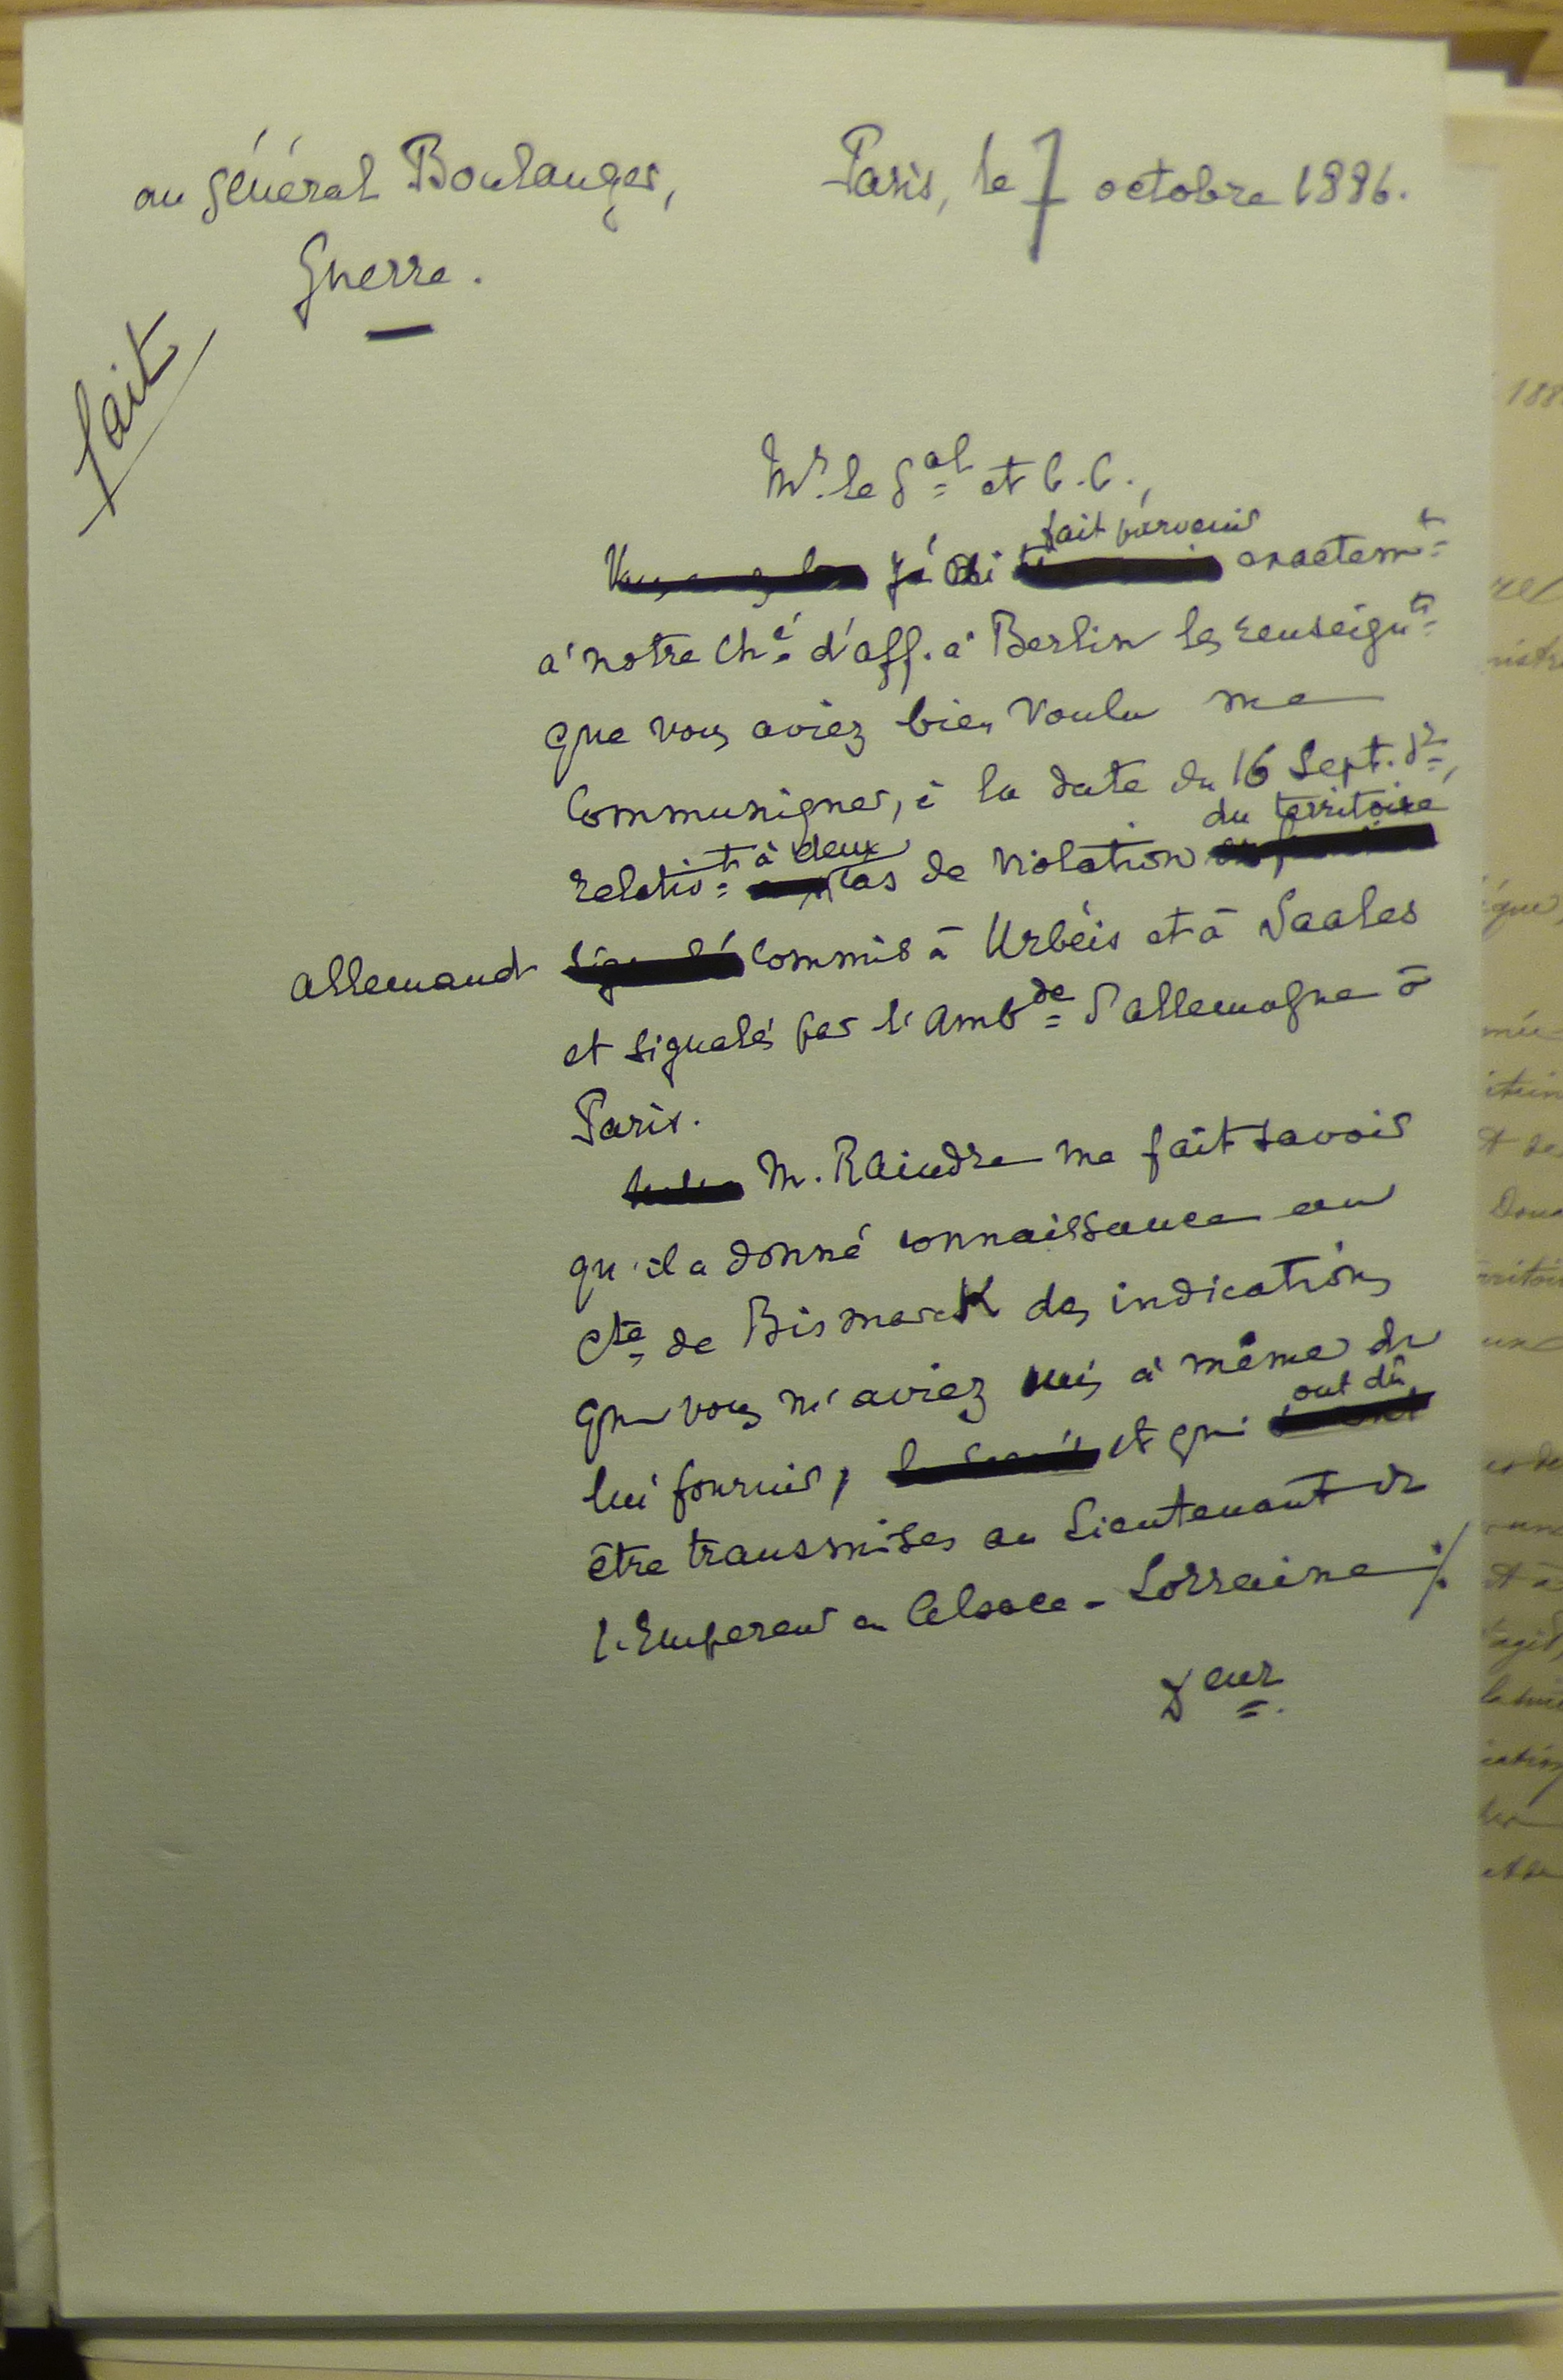 au général Boulanger,
Paris, le 7 octobre 1886.
Guerre.
fait
Mr. le Gal et C. C.,
j'ai fait parvenir exactemt
à notre Ché d'aff. à Berlin les renseignts
que vous aviez bien voulu me
communiquer, à la date du 16 Sept. dr,
relativt à deux cas de violation du territoire
allemand commis à Urbéis et à Saales
et signalés par l'Ambde d'Allemagne à
Paris.
M. Raindre me fait savoir
qu'il a donné connaissance au
Cte de Bismarck des indications
que vous m'aviez mis à même de
lui fournir, et qui ont dû
être transmises au Lieutenant de
l'Empereur en Alsace-Lorraine ./.